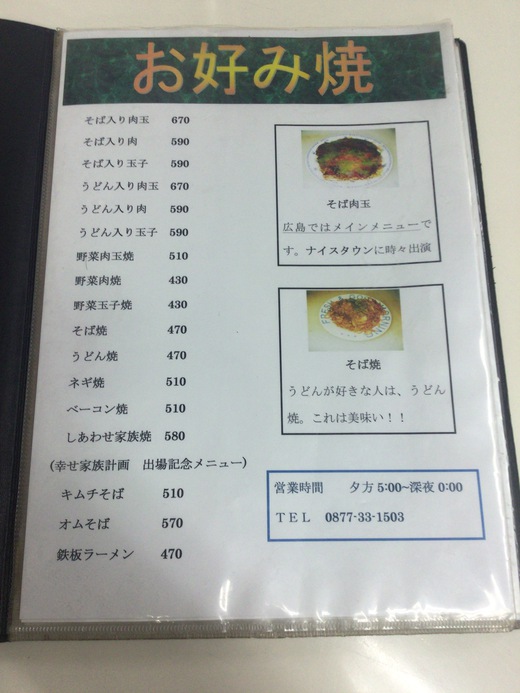 お好み焼
そば入り肉玉 670
そば入り肉 590
そば入り玉子 590
うどん入り肉玉 670
うどん入り肉 590
うどん入り玉子 590
野菜肉玉焼 510
野菜肉焼 430
野菜玉子焼 430
そば焼 470
うどん焼 470
ネギ焼 510
ベーコン焼 510
しあわせ家族焼 580
(幸せ家族計画 出場記念メニュー)
キムチそば 510
オムそば 570
鉄板ラーメン 470
そば肉玉
広島ではメインメニューで
す。ナイスタウンに時々出演
そば焼
うどんが好きな人は、うどん
焼。これは美味い！！
営業時間 夕方 5:00~深夜 0:00
ＴＥＬ 0877-33-1503